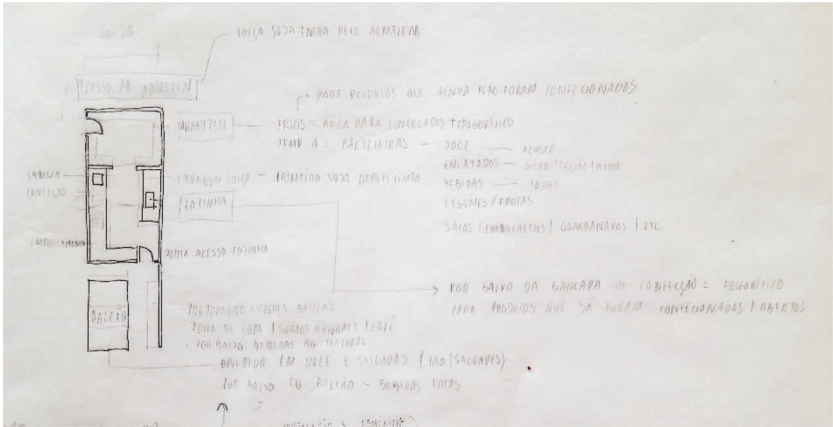 LOIÇA SUJA ENTRA PELO ARMAZEM
ACESSO AO ARMAZEM
PARA PRODUTOS QUE AINDA NÃO FORAM CONFECIONADOS
ARMAZEM
FRIOS = AREA PARA CONGELADOS + FRIGORIFICO
TEMP. A = PRATELEIRAS - DOCE — AÇUCAR
ENLATADOS —
BEBIDAS — TODAS
LEGUMES / FRUTAS
SACOS | EMBALAGENS | GUARDANAPOS | ETC
LAVAGEM LOIÇA - PRIMEIRO SUJA DEPOIS LIMPA
LAVAGEM
CONFEÇÃO
COZINHA
EMPRATAMENTO
PORTA ACESSO COZINHA
POR BAIXO DA BANCADA DE CONFECÇÃO = FRIGORIFICO
PARA PRODUTOS QUE JÁ FORAM CONFECIONADOS | ABERTOS
BALCÃO
ZONA DE COPA | SUMOS NATURAIS | CAFÉ
- POR BAIXO BEBIDAS AO NATURAL
DIVIDIDO EM DOCE E SALGADOS
POR BAIXO DO BALCÃO - BEBIDAS FRIAS